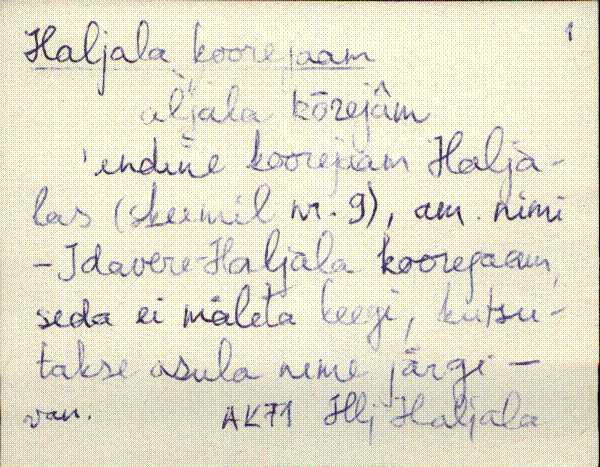 Haljala koorejaam 1
aljala kōrejâm
'endine koorejaam Halja-
las (skeemil nr. 9), am. nimi
- Idavere-Haljala koorejaam,
seda ei mäleta keegi, kutsu-
takse asula nime järgi -
van. AK71 Hlj Haljala